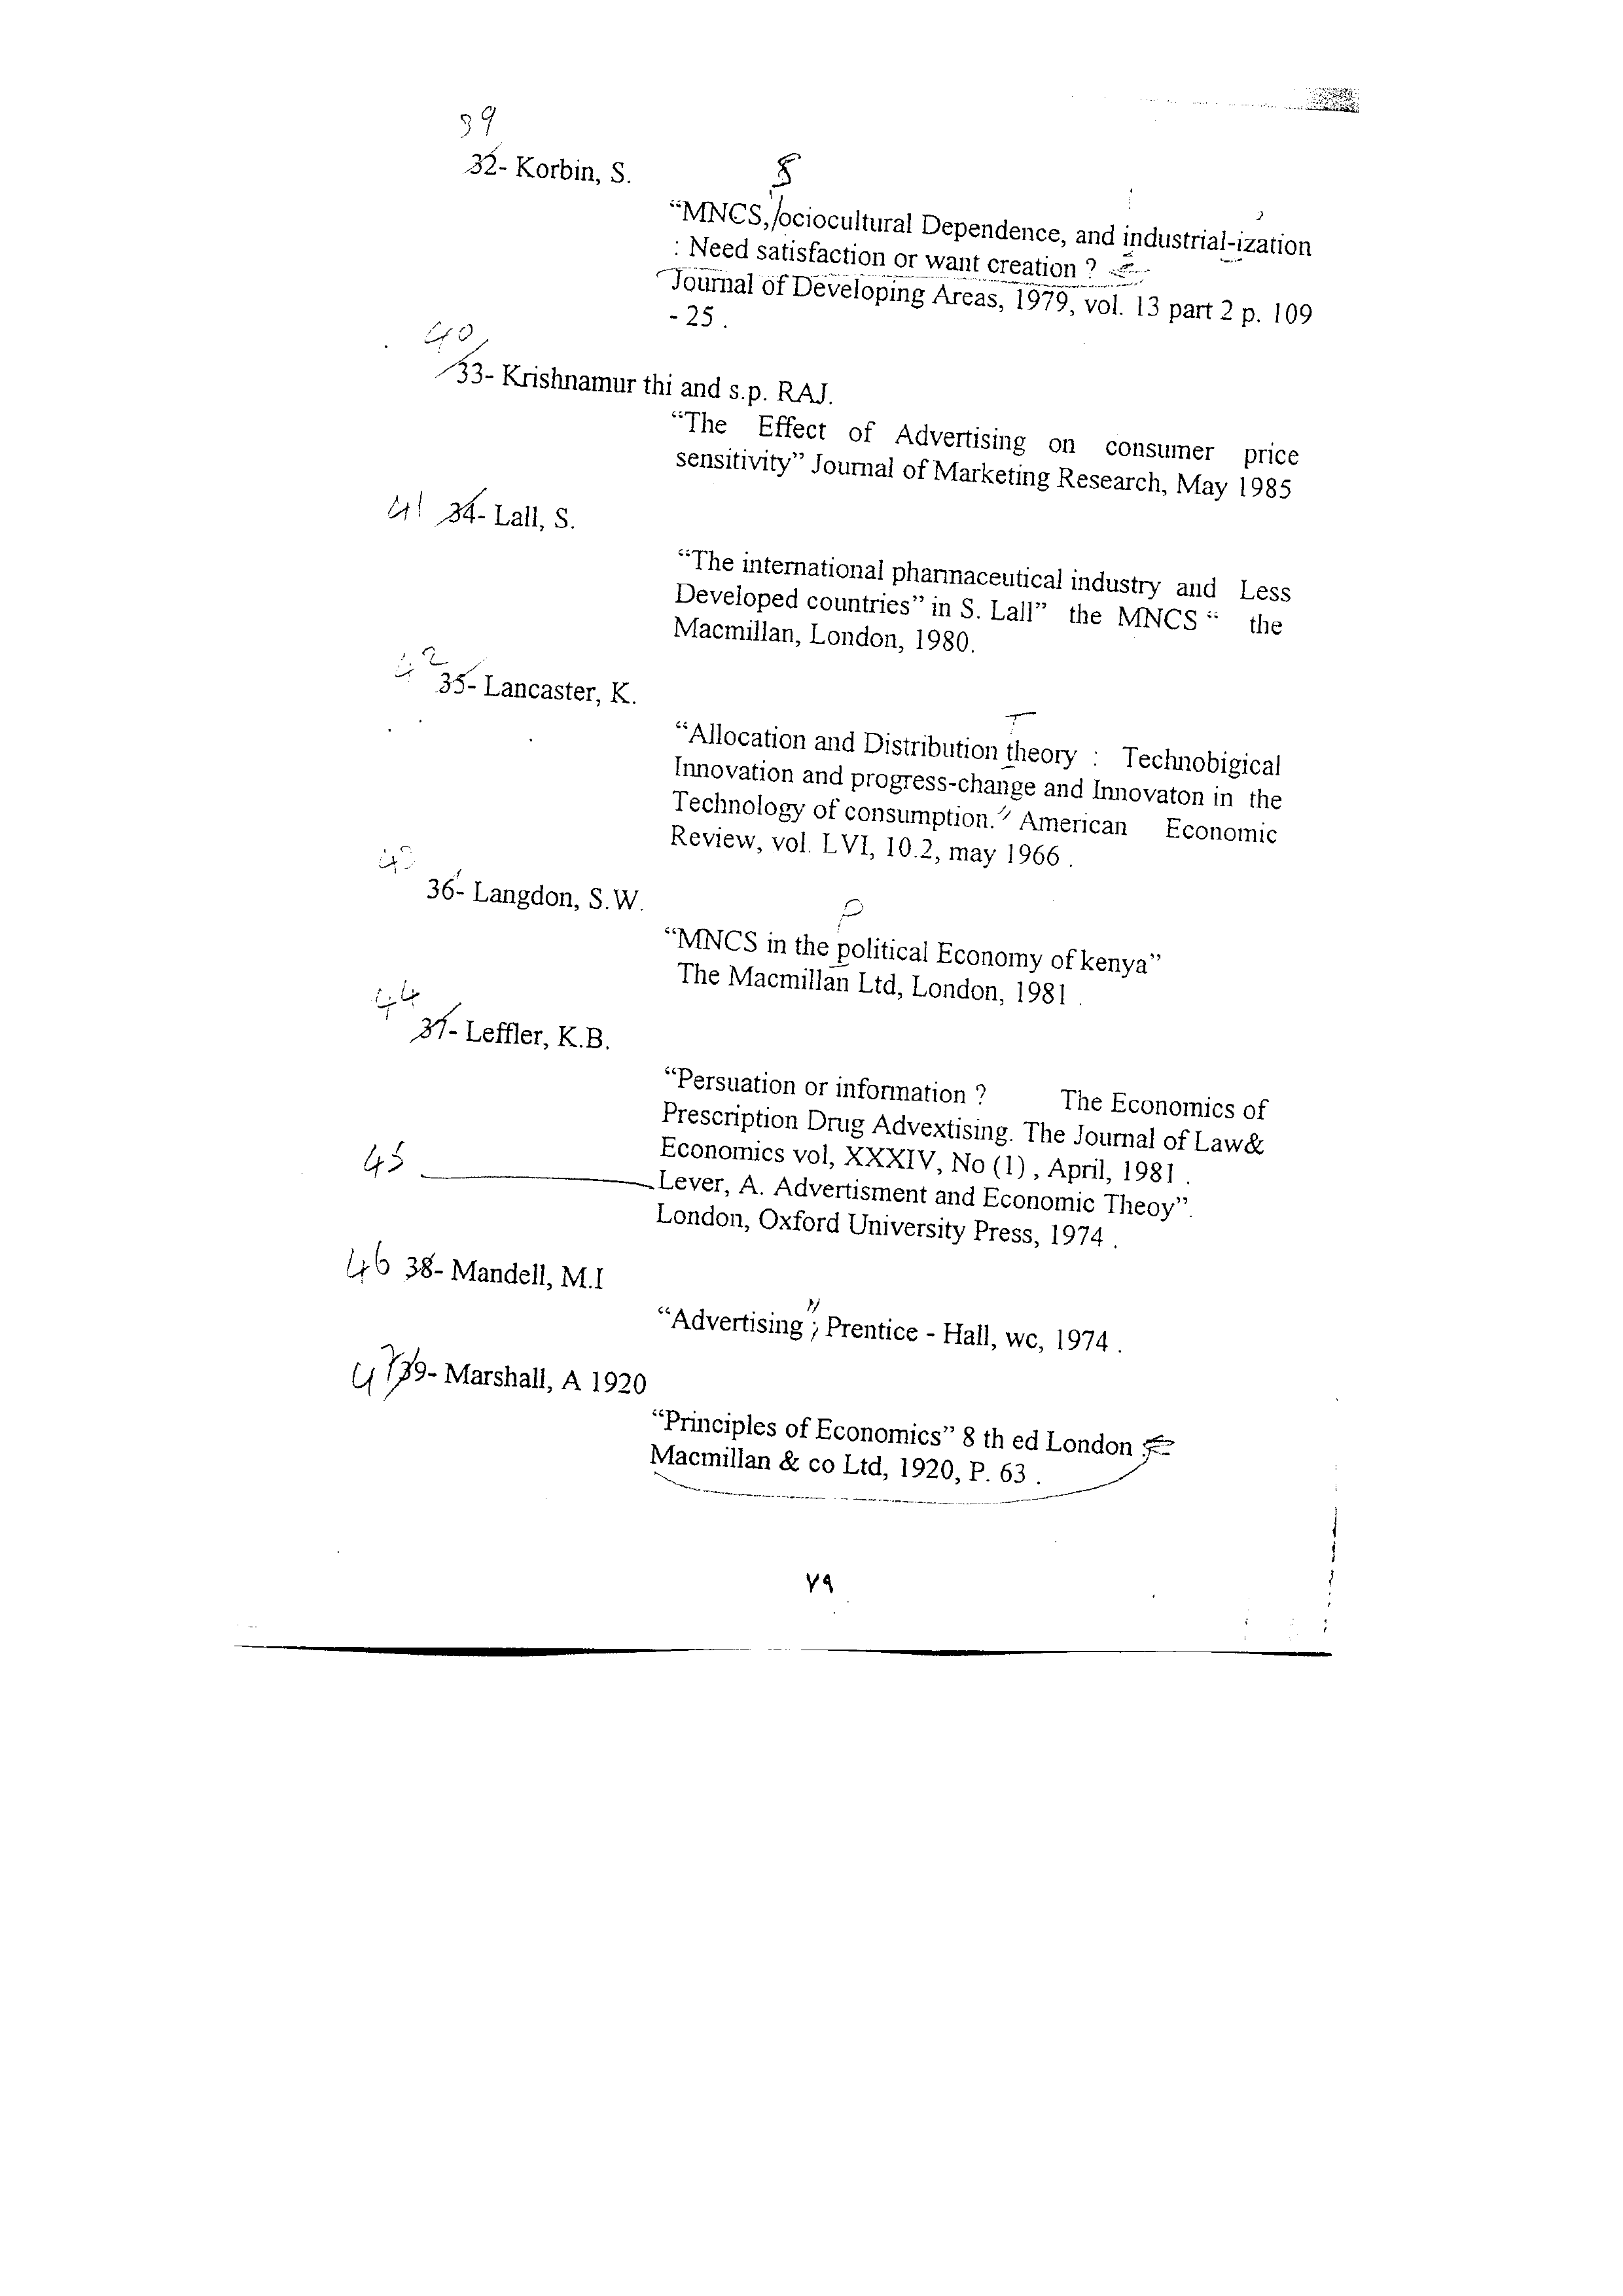 39
32- Korbin, S.
S
“MNCS, ociocultural Dependence, and industrial-ization
: Need satisfaction or want creation ?
Journal of Developing Areas, 1979, vol. 13 part 2 p. 109
- 25 .
40
33- Krishnamur thi and s.p. RAJ.
“The Effect of Advertising on consumer price
sensitivity” Journal of Marketing Research, May 1985
41 34- Lall, S.
“The international pharmaceutical industry and Less
Developed countries” in S. Lall” the MNCS “ the
Macmillan, London, 1980.
42
35- Lancaster, K.
T
“Allocation and Distribution theory : Technobigical
Innovation and progress-change and Innovaton in the
Technology of consumption.” American Economic
Review, vol. LVI, 10.2, may 1966 .
43
36- Langdon, S.W.
P
“MNCS in the political Economy of kenya”
The Macmillan Ltd, London, 1981 .
44
37- Leffler, K.B.
“Persuation or information ? The Economics of
Prescription Drug Advextising. The Journal of Law&
Economics vol, XXXIV, No (1) , April, 1981 .
45
Lever, A. Advertisment and Economic Theoy”.
London, Oxford University Press, 1974 .
46 38- Mandell, M.I
“Advertising”, Prentice - Hall, wc, 1974 .
47 39- Marshall, A 1920
“Principles of Economics” 8 th ed London
Macmillan & co Ltd, 1920, P. 63 .
٧٩